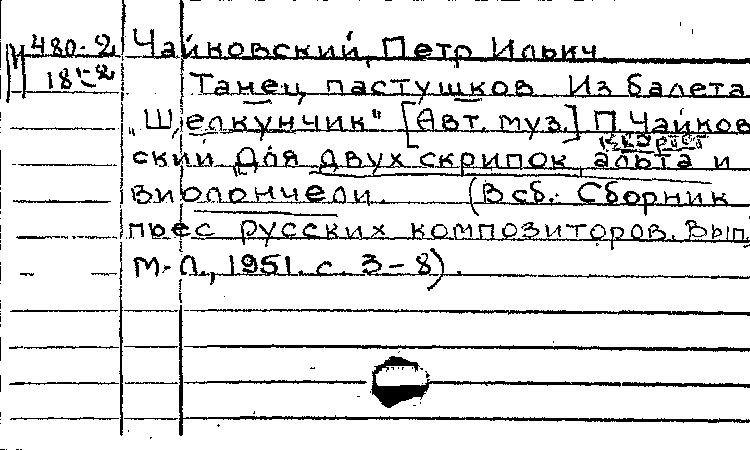 М 480-2 Чайковский, Петр Ильич
18-2 Танец пастушков Из балета
„Щелкунчик" [Авт. муз.] П Чайков
квартет
ский Для двух скрипок, альта и
виолончели. (В сб.: Сборник
пьес русских композиторов. Вып.
М.-Л., 1951. с. 3-8).